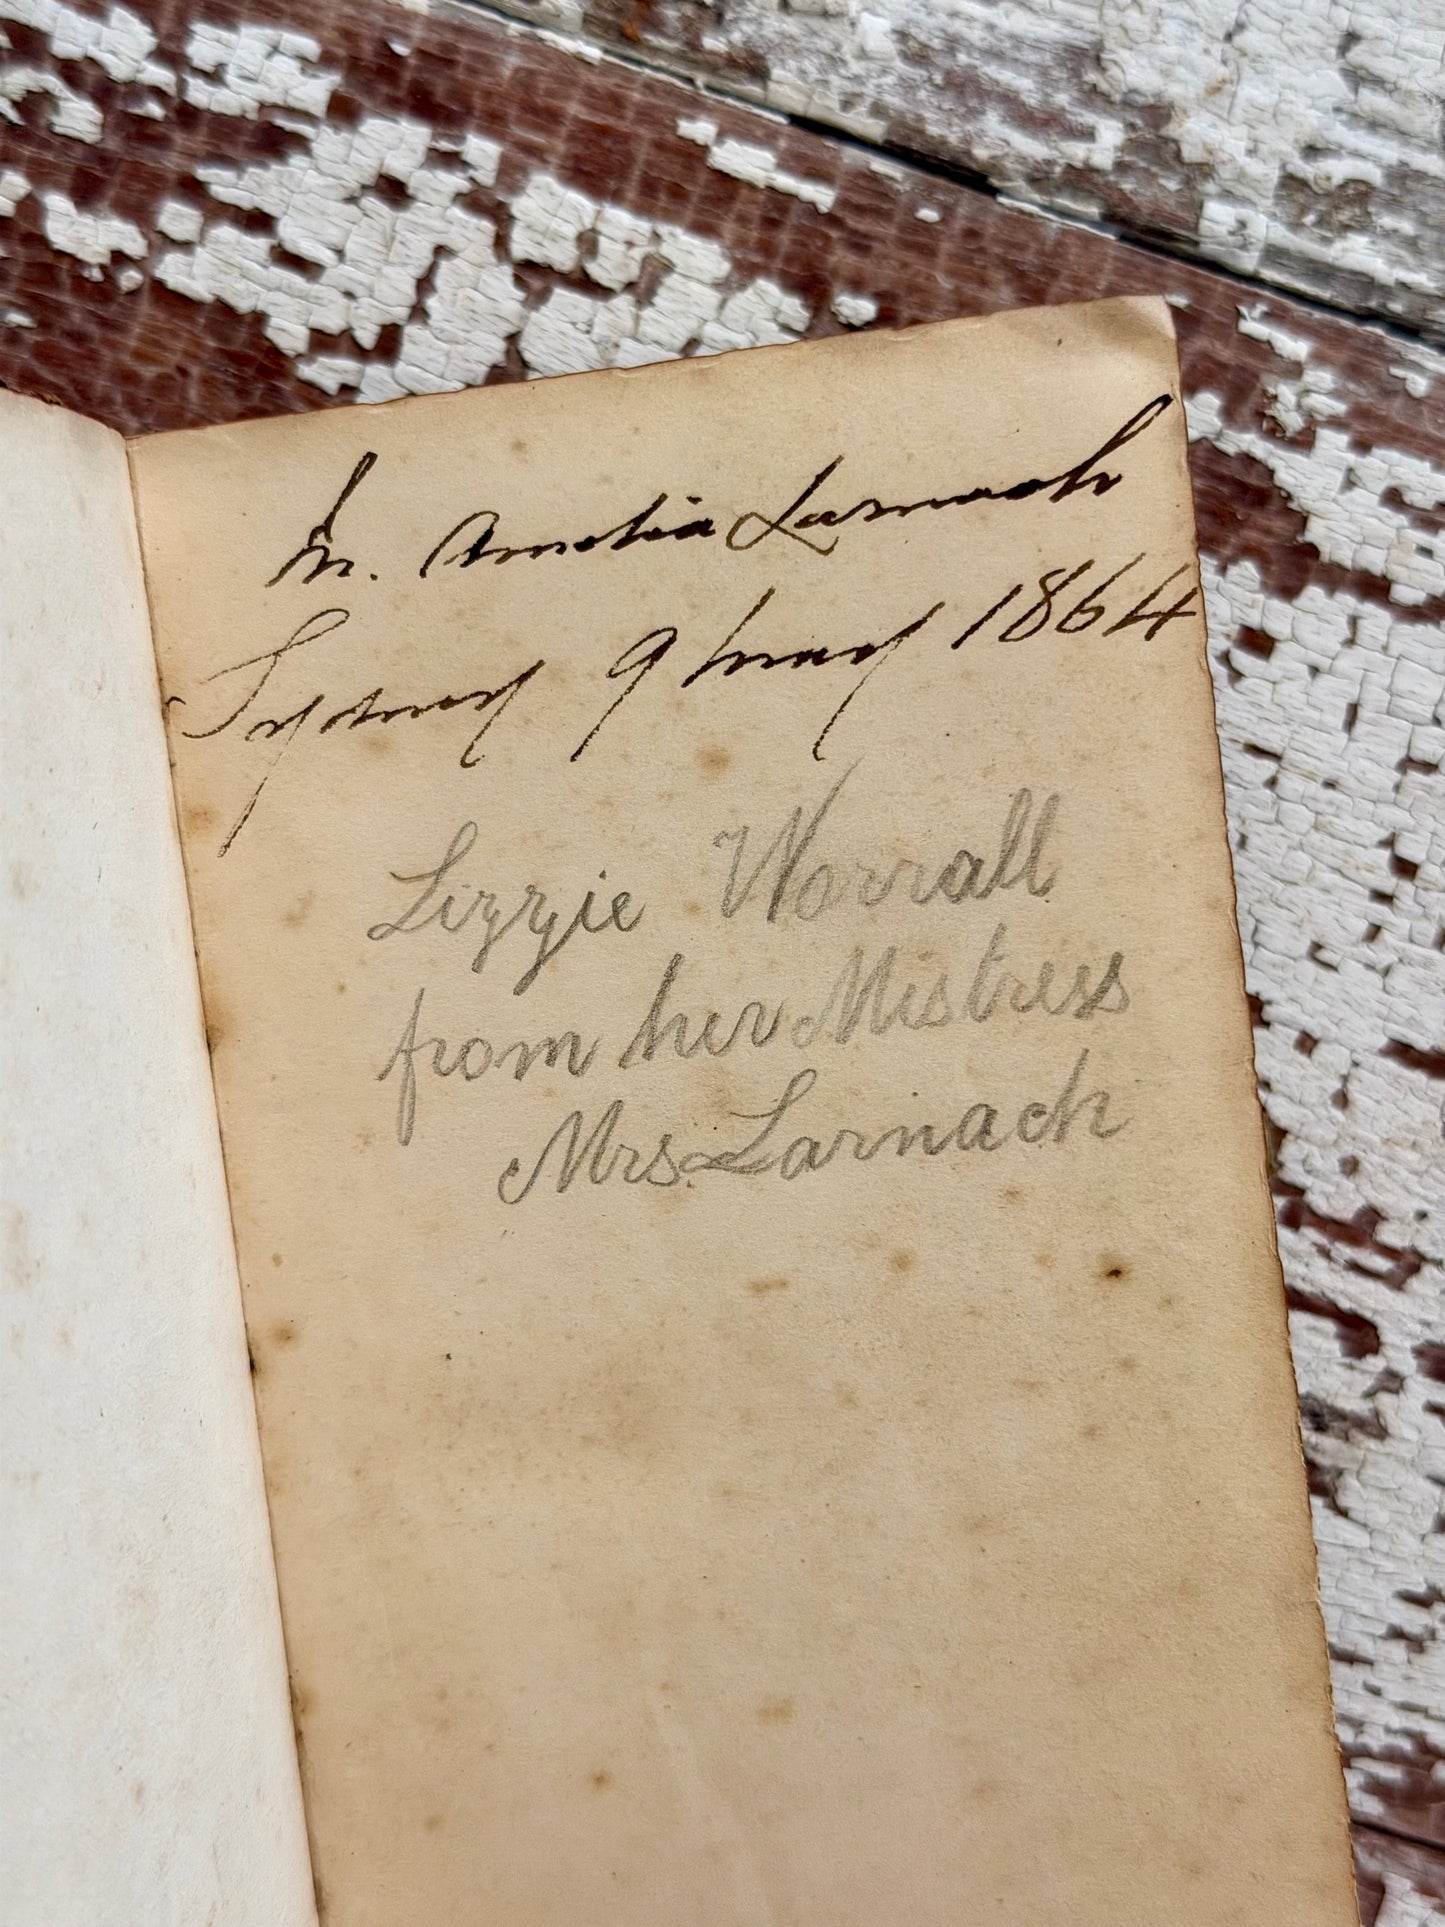 M. Amelia Larnach
Sydney 9 May 1864
Lizzie Worrall
from her Mistress
Mrs. Larnach